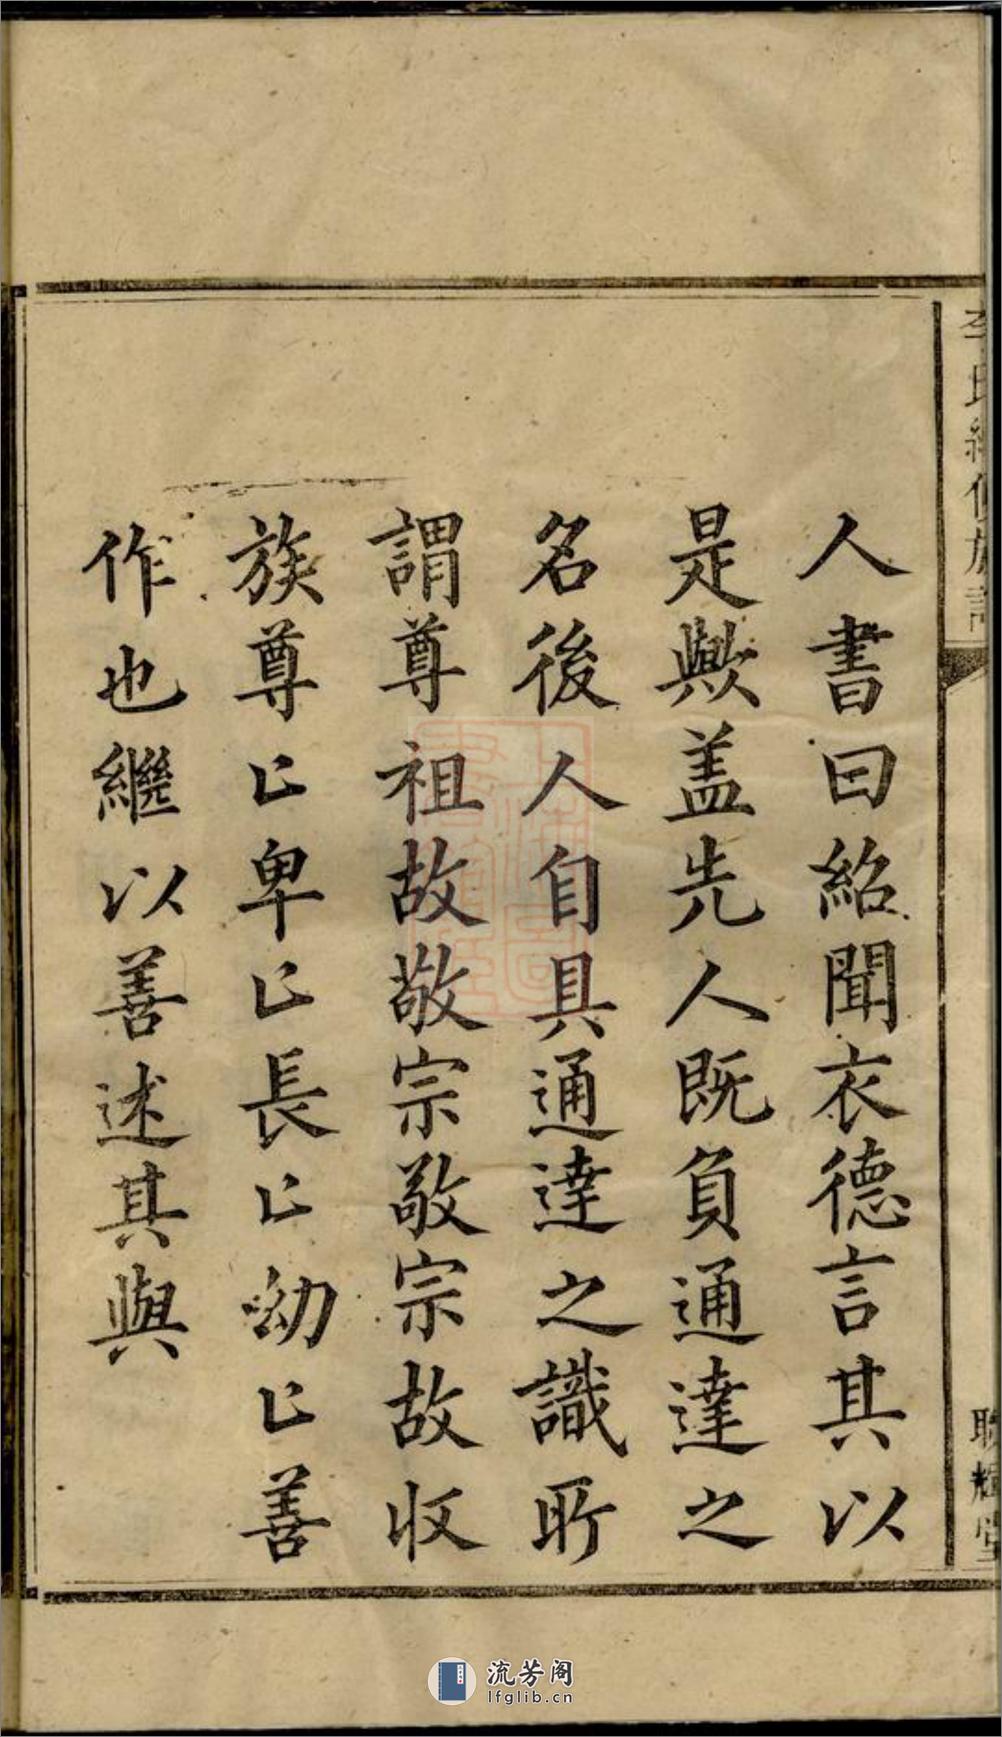 人書曰紹聞衣德言其以
是歟盖先人既負通達之
名後人自具通達之識所
謂尊祖故敬宗敬宗故收
族尊〻卑〻長〻幼〻善
作也繼以善述其與
李氏續修族譜
聯輝堂
流芳阁
lfglib.cn